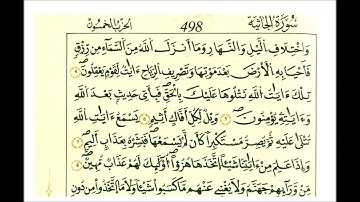 سُورَةُ الجَاثِيَة 498 الحِزْبُ الخَمْسُون
وَاخْتِلَافِ الَّيْلِ وَالنَّهَارِ وَمَا أَنزَلَ اللَّهُ مِنَ السَّمَاءِ مِن رِّزْقٍ
فَأَحْيَا بِهِ الْأَرْضَ بَعْدَ مَوْتِهَا وَتَصْرِيفِ الرِّيَاحِ ءَايَاتٌ لِّقَوْمٍ يَعْقِلُونَ
تِلْكَ ءَايَاتُ اللَّهِ نَتْلُوهَا عَلَيْكَ بِالْحَقِّ فَبِأَيِّ حَدِيثٍ بَعْدَ اللَّهِ
وَءَايَاتِهِ يُؤْمِنُونَ وَيْلٌ لِّكُلِّ أَفَّاكٍ أَثِيمٍ يَسْمَعُ ءَايَاتِ اللَّهِ
تُتْلَى عَلَيْهِ ثُمَّ يُصِرُّ مُسْتَكْبِرًا كَأَن لَّمْ يَسْمَعْهَا فَبَشِّرْهُ بِعَذَابٍ أَلِيمٍ
وَإِذَا عَلِمَ مِنْ ءَايَاتِنَا شَيْئًا اتَّخَذَهَا هُزُوًا أُوْلَئِكَ لَهُمْ عَذَابٌ مُّهِينٌ
مِّن وَرَائِهِمْ جَهَنَّمُ وَلَا يُغْنِي عَنْهُم مَّا كَسَبُوا شَيْئًا وَلَا مَا اتَّخَذُوا مِن دُونِ